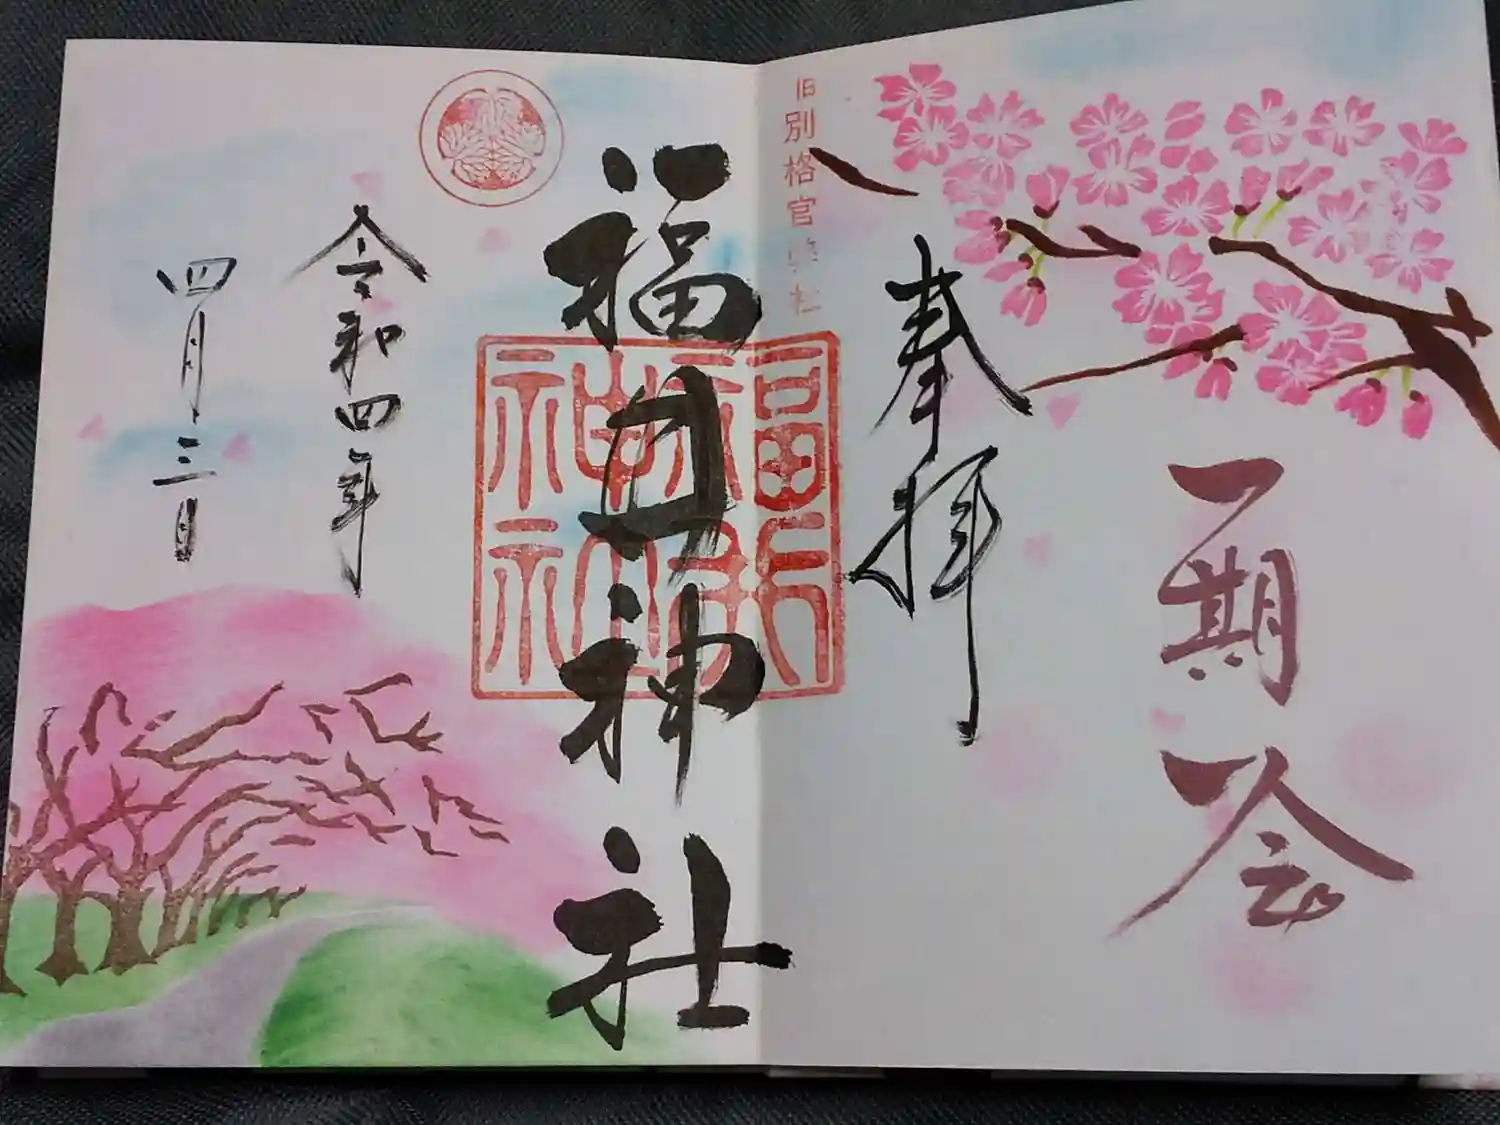 一期一会
奉拝
旧別格官幣社
福井神社
令和四年
四月三日